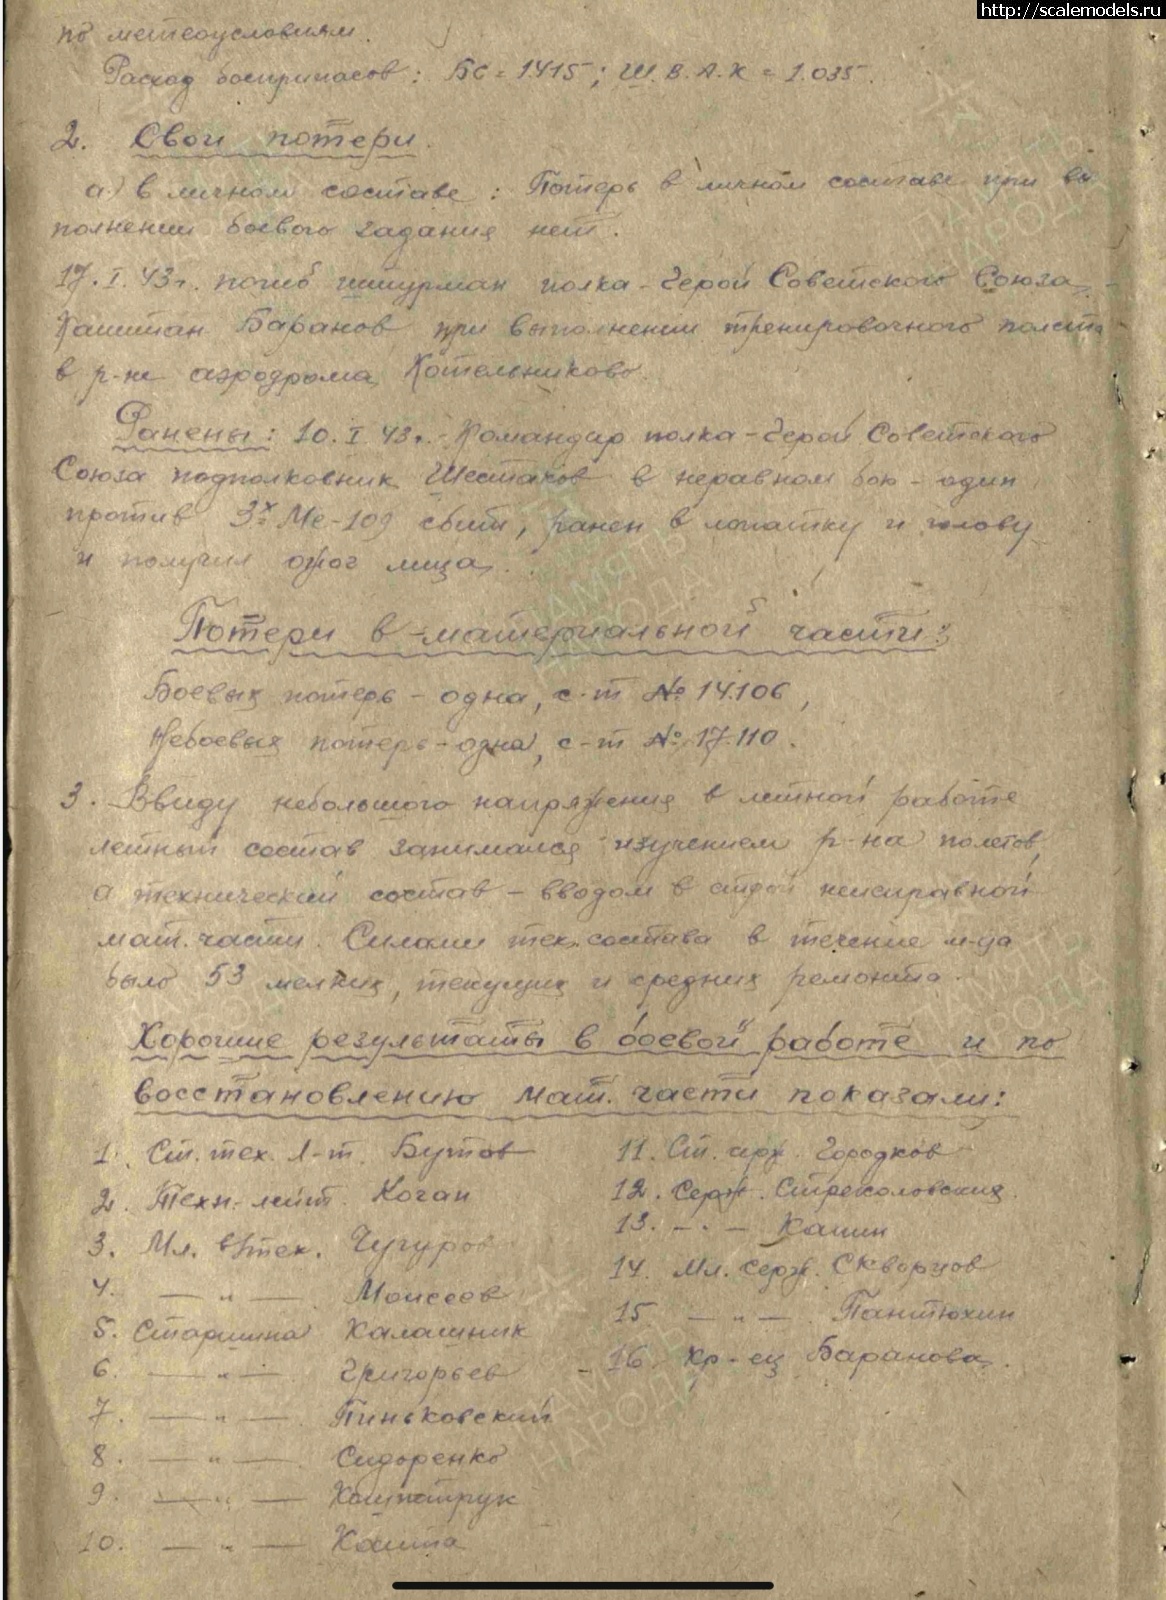 http://scalemodels.ru
по метеоусловиям.
Расход боеприпасов: БС = 1415; Ш.В.А.К = 1.035.
2. Свои потери.
а) в личном составе: Потерь в личном составе при вы
полнении боевого задания нет.
17.I.43г. погиб штурман полка - Герой Советского Союза
Капитан Баранов при выполнении тренировочного полета
в р-не аэродрома Котельниково.
Ранены: 10.I.43г. - Командир полка - Герой Советского
Союза подполковник Шестаков в неравном бою - один
против 3х Ме-109 сбит, ранен в лопатку и голову
и получил ожог лица.
Потери в материальной части:
Боевых потерь - одна, с-т № 14.106,
Небоевых потерь - одна, с-т № 17.110.
3. Ввиду небольшого напряжения в летной работе
летный состав занимался изучением р-на полетов,
а технический состав - вводом в строй неисправной
мат. части. Силами тех.состава в течение м-ца
было 53 мелких, текущих и средних ремонта.
Хорошие результаты в боевой работе и по
восстановлению мат. части показали:
1. Ст. тех. л-т. Бутов
2. Техн.-лейт. Коган
3. Мл. в/тех. Чугуров
4. — " — Моисеев
5. Старшина Калашник
6. — " — Григорьев
7. — " — Пиньковский
8. — " — Сидоренко
9. — " —
10. — " —
11. Ст. серж. Городков
12. Серж.
13. — " — Кашин
14. Мл. серж. Скворцов
15. — " — Пантюхин
16. Кр-ец Баранова.
ПАМЯТЬ
НАРОДА